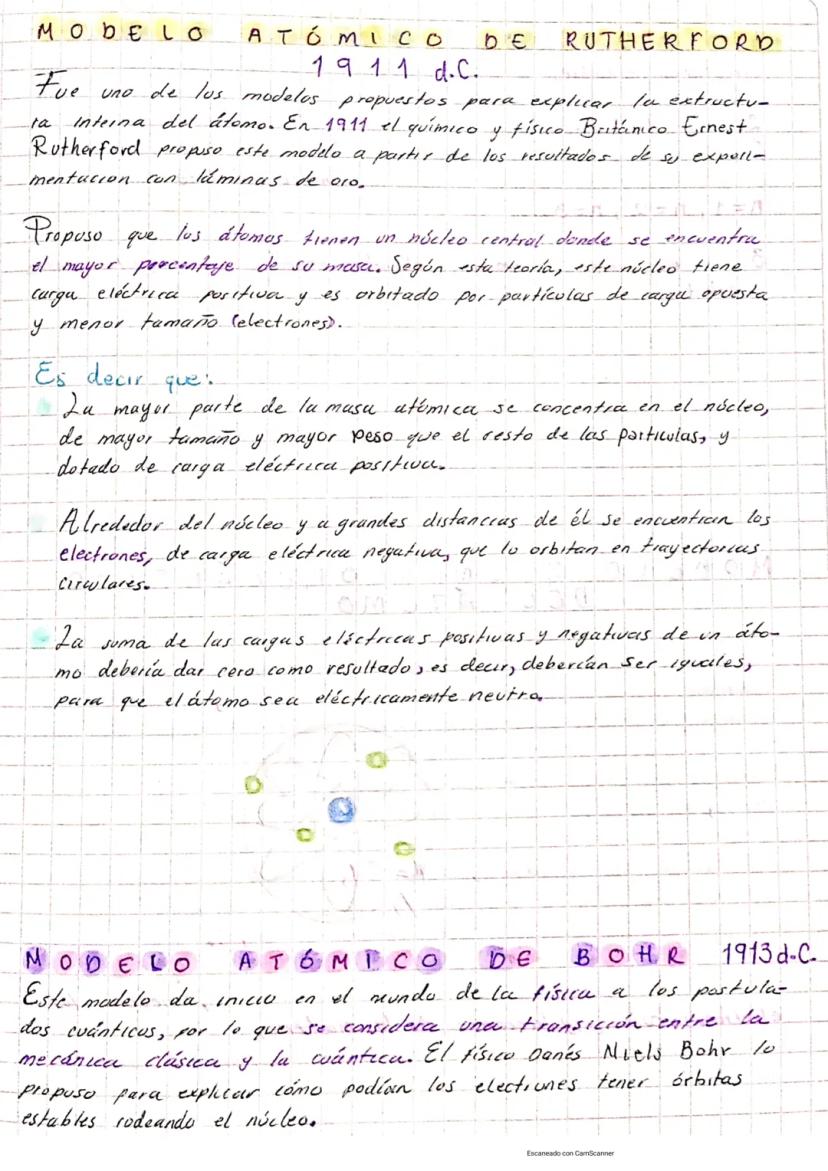 MODELO ATÓMICO DE RUTHERFORD
1911 d.C.
Fue uno de los modelos propuestos para explicar la extructu-
ra interna del átomo. En 1911 el químico y físico Británico Ernest
Rutherford propuso este modelo a partir de los resultados de su experi-
mentacion con láminas de oro.
Propuso que los átomos tienen un núcleo central donde se encuentra
el mayor porcentaje de su masa. Según esta teoría, este núcleo tiene
carga eléctrica positiva y es orbitado por partículas de carga opuesta
y menor tamaño (electrones).
Es decir que:
La mayor parte de la masa atómica se concentra en el núcleo,
de mayor tamaño y mayor peso que el resto de las particulas, y
dotado de carga eléctrica positiva.
Alrededor del núcleo y a grandes distancias de él se encuentran los
electrones, de carga eléctrica negativa, que lo orbitan en trayectorias
circulares.
La suma de las cargas eléctricas positivas y negativas de un áto-
mo debería dar cero como resultado, es decir, deberían ser iguales,
para que el átomo sea eléctricamente neutro.
MODELO ATÓMICO DE BOHR 1913 d.C.
Este modelo da inicio en el mundo de la física a los postula-
dos cuánticos, por lo que se considera una transicción entre la
mecánica clásica y la cuántica. El físico Danés Niels Bohr lo
propuso para explicar cómo podían los electrones tener órbitas
estables rodeando el núcleo.
Escaneado con CamScanner